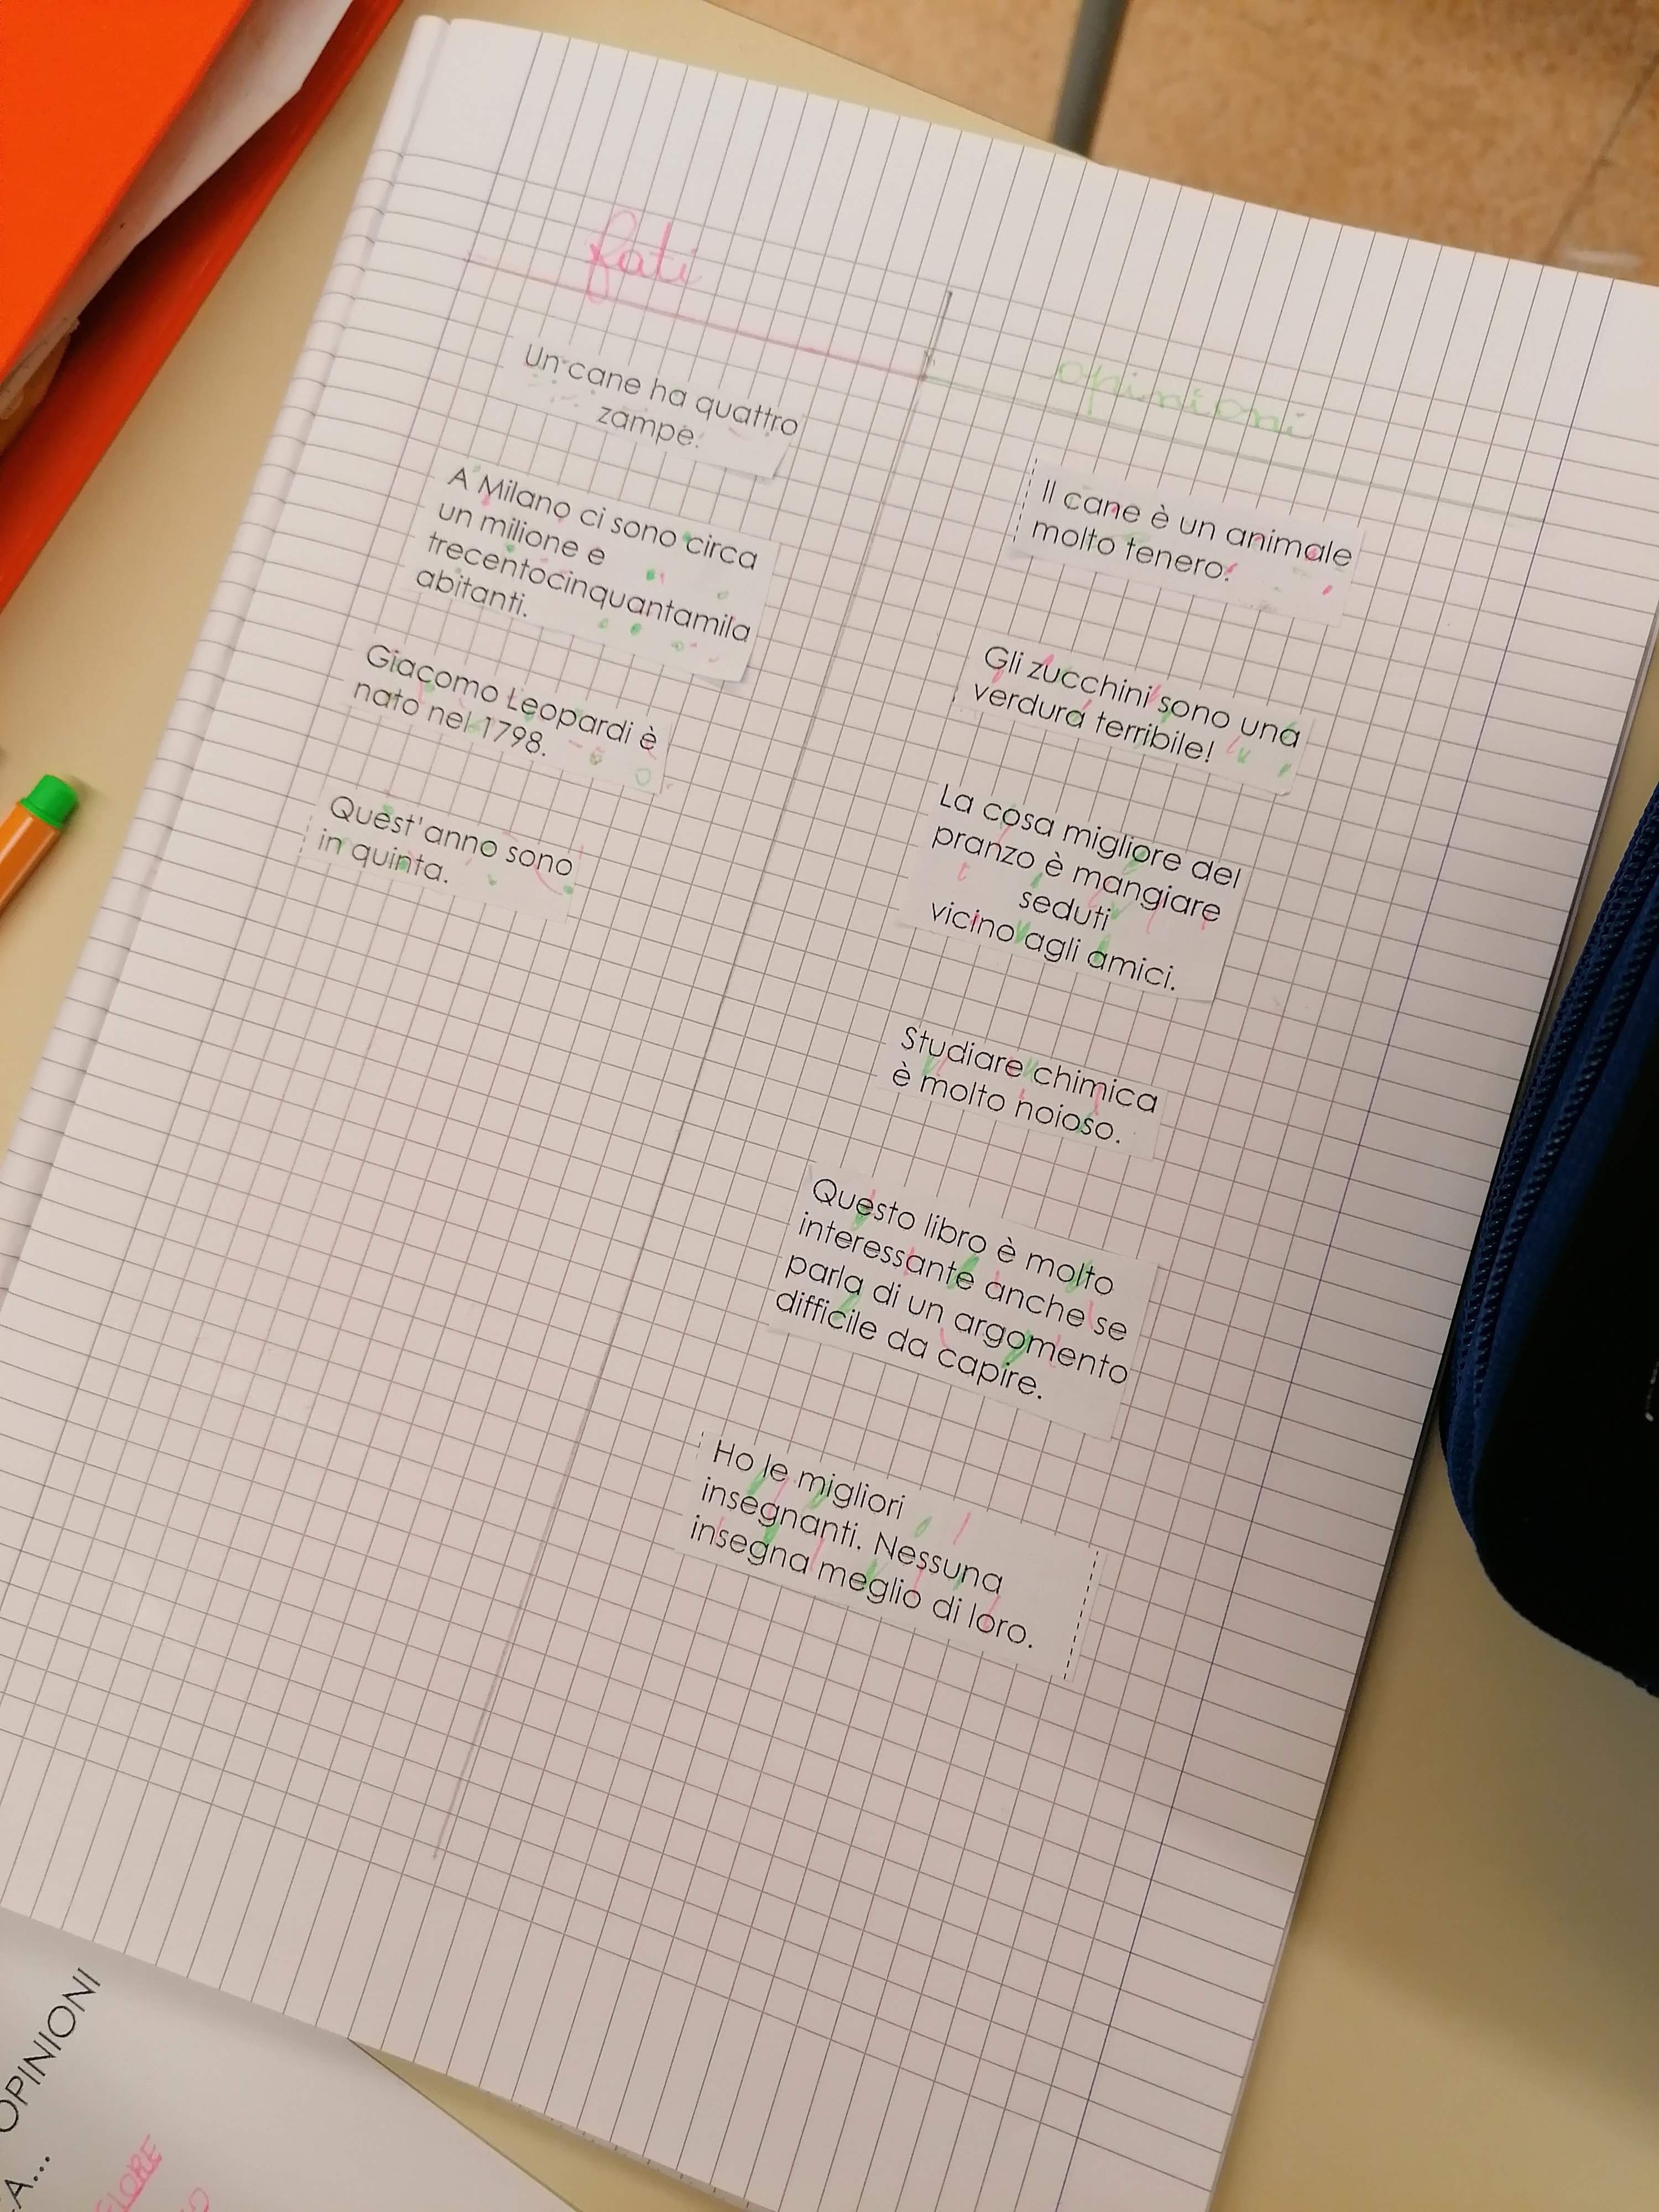 fati
Un cane ha quattro
zampe.
A Milano ci sono circa
un milione e
trecentocinquantamila
abitanti.
Giacomo Leopardi è
nato nel 1798.
Quest'anno sono
in quinta.
opinioni
Il cane è un animale
molto tenero.
Gli zucchini sono una
verdura terribile!
La cosa migliore del
pranzo è mangiare
seduti
vicino agli amici.
Studiare chimica
è molto noioso.
Questo libro è molto
interessante anche se
parla di un argomento
difficile da capire.
Ho le migliori
insegnanti. Nessuna
insegna meglio di loro.
OPINIONI